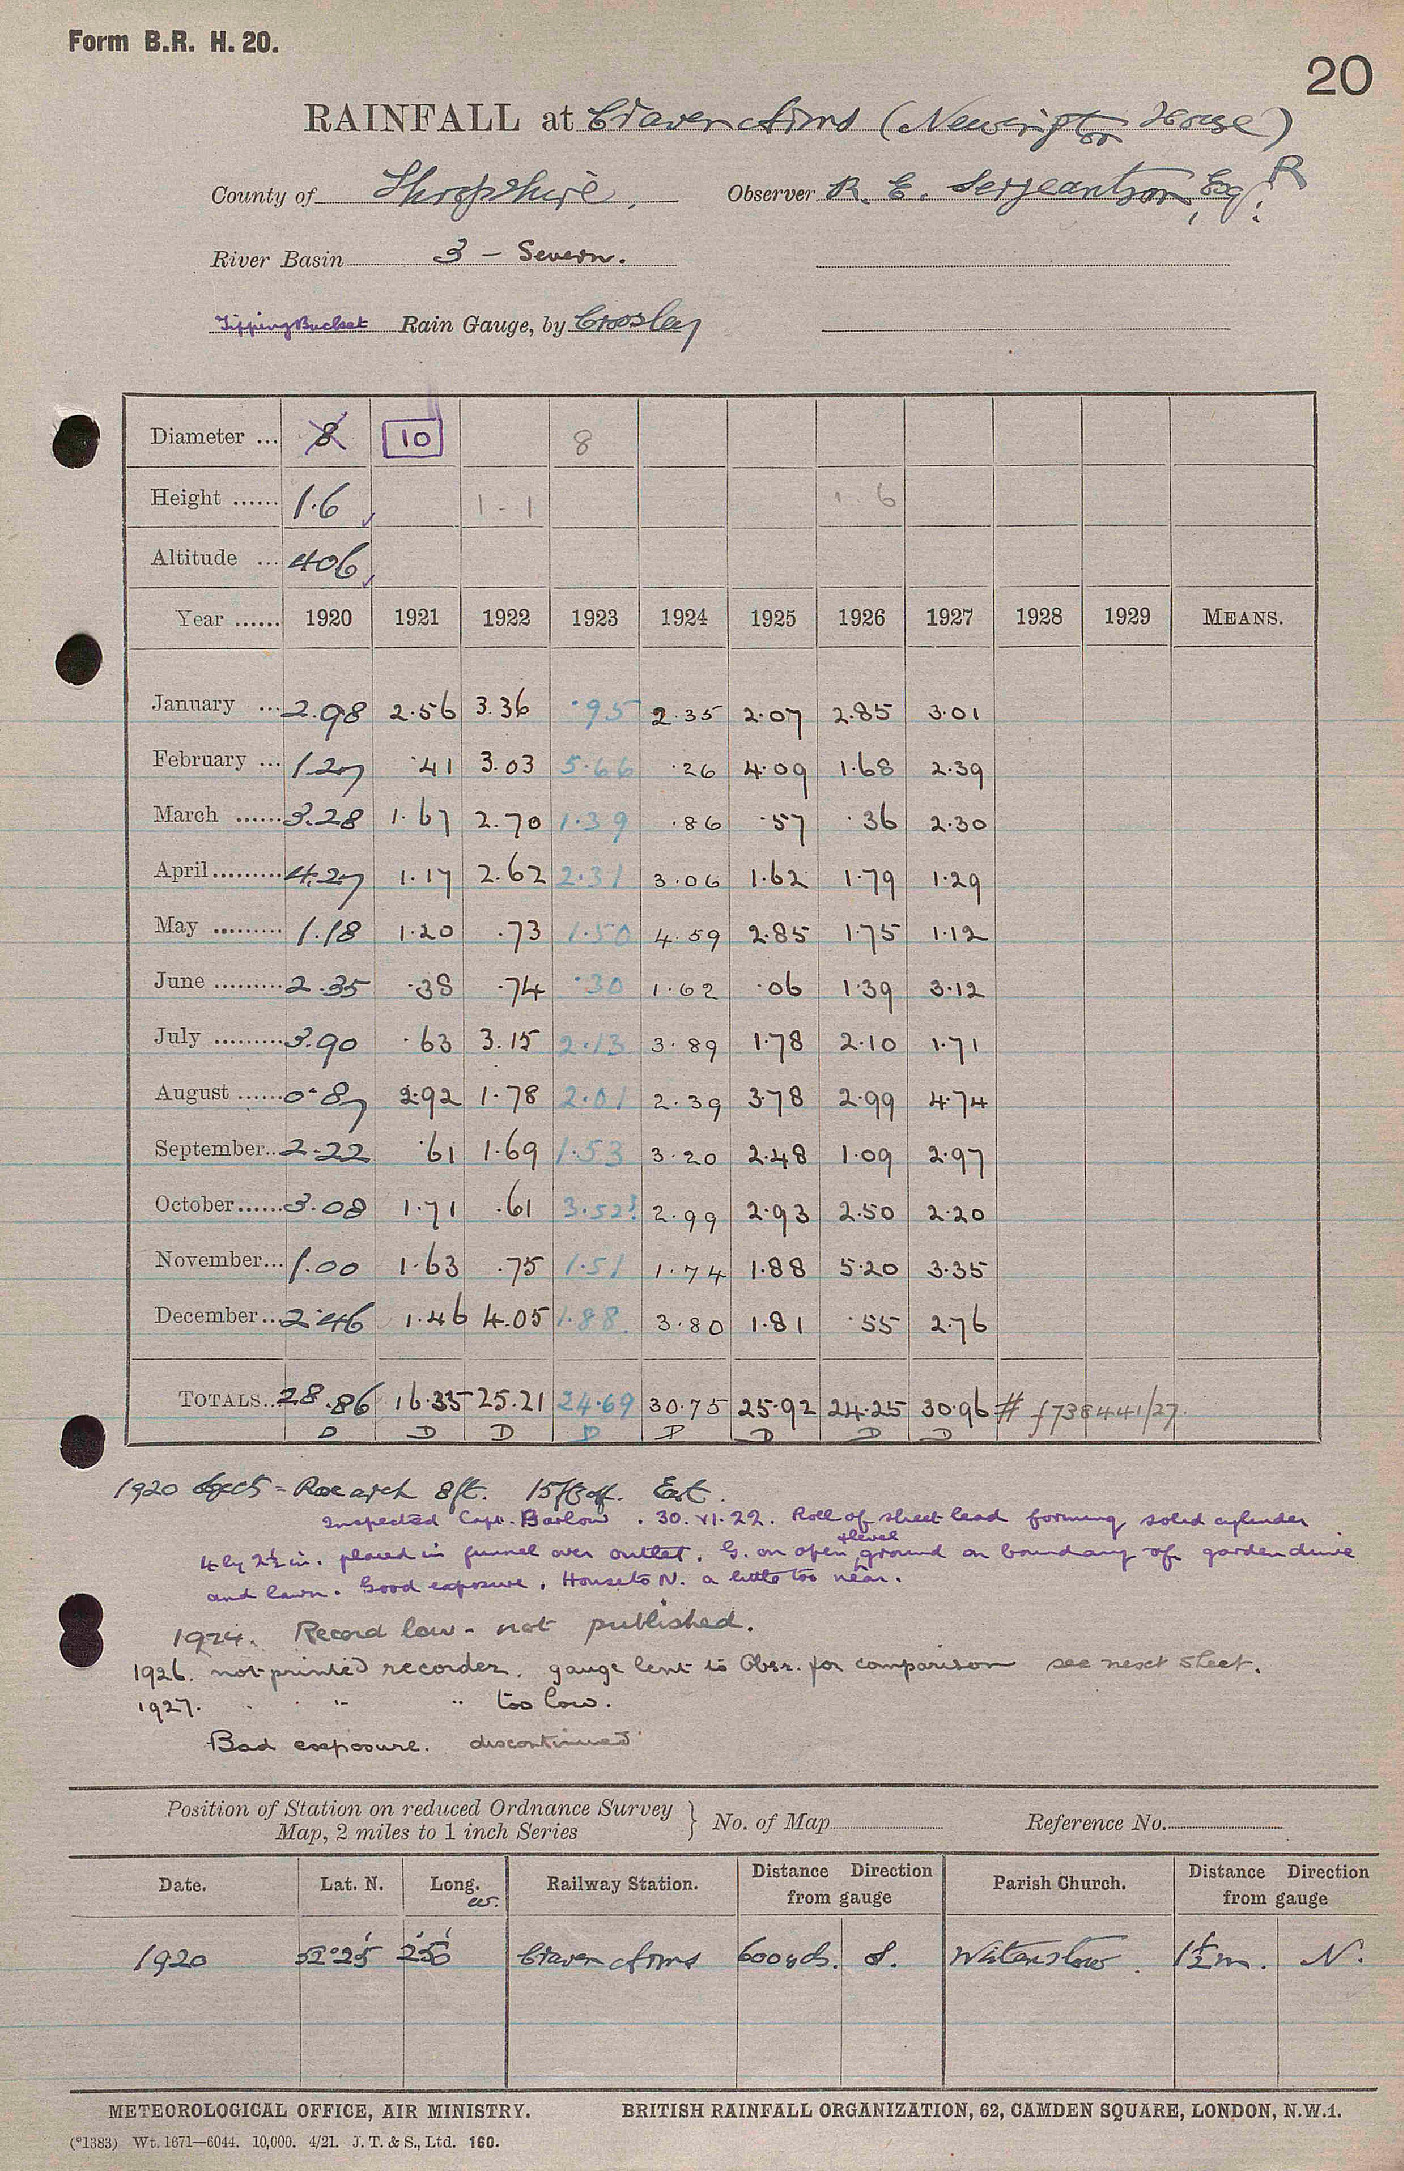 Form B.R. H. 20.
20
RAINFALL at Craven Arms (Newington House)
County of Shropshire. Observer R. E. Serjeantson, Esq. R
River Basin 3 - Severn.
Tipping Bucket Rain Gauge, by Crosley
Diameter ... 8 10 8
Height ...... 1.6 1.1 1 6
Altitude ... 406
Year ...... 1920 1921 1922 1923 1924 1925 1926 1927 1928 1929 MEANS.
January ... 2.98 2.56 3.36 .95 2.35 2.07 2.85 3.01
February ... 1.27 .41 3.03 5.66 .26 4.09 1.68 2.39
March ...... 3.28 1.67 2.70 1.39 .86 .57 .36 2.30
April ......... 4.27 1.17 2.62 2.31 3.06 1.62 1.79 1.29
May ......... 1.18 1.20 .73 1.50 4.59 2.85 1.75 1.12
June ......... 2.35 .38 .74 .30 1.62 .06 1.39 3.12
July ......... 3.90 .63 3.15 2.13 3.89 1.78 2.10 1.71
August ...... 0.87 2.92 1.78 2.01 2.39 3.78 2.99 4.74
September.. 2.22 .61 1.69 1.53 3.20 2.48 1.09 2.97
October...... 3.08 1.71 .61 3.52? 2.99 2.93 2.50 2.20
November... 1.00 1.63 .75 1.51 1.74 1.88 5.20 3.35
December.. 2.46 1.46 4.05 1.88 3.80 1.81 .55 2.76
TOTALS.. 28.86 16.35 25.21 24.69 30.75 25.92 24.25 30.96 # f738441/27.
D D D D D D D D
1920 Objects = Rose arch 8ft. 15ft off. East.
Inspected Capt. Barlow. 30.VI.22. Roll of sheet lead forming solid cylinder
4 by 2½ in. placed in funnel over outlet. G. on open & level ground on boundary of garden drive
and lawn. Good exposure. House to N. a little too near.
1924. Record low - not published.
1926. not printed recorder. gauge lent to Obsr. for comparison see next sheet.
1927. " " " too low.
Bad exposure. discontinued
Position of Station on reduced Ordnance Survey Map, 2 miles to 1 inch Series } No. of Map Reference No.
Date. Lat. N. Long. W. Railway Station. Distance Direction from gauge Parish Church. Distance Direction from gauge
1920 52°25' 2°50' Craven Arms 600 yds. S. Wistanstow. 1½ m. N.
METEOROLOGICAL OFFICE, AIR MINISTRY. BRITISH RAINFALL ORGANIZATION, 62, CAMDEN SQUARE, LONDON, N.W.1.
(*1383) Wt. 1671—6044. 10,000. 4/21. J. T. & S., Ltd. 160.